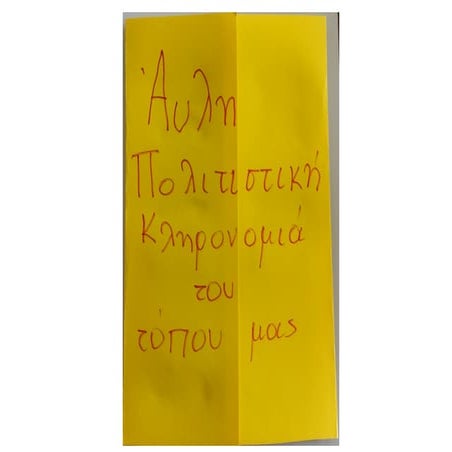 Άυλη
Πολιτιστική
Κληρονομιά
του
τόπου μας